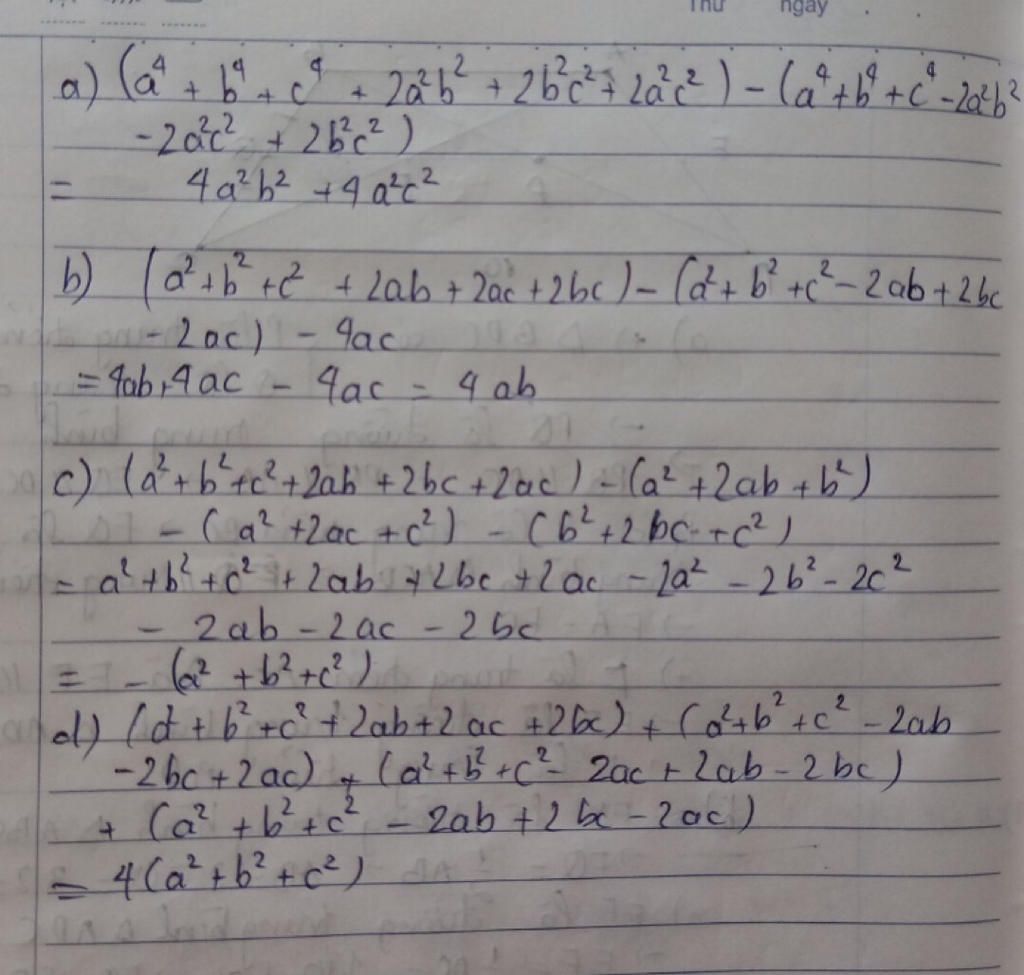 Thứ ngày . .
a) (a⁴ + b⁴ + c⁴ + 2a²b² + 2b²c² + 2a²c²) - (a⁴ + b⁴ + c⁴ - 2a²b²
- 2a²c² + 2b²c²)
= 4a²b² + 4a²c²
b) (a² + b² + c² + 2ab + 2ac + 2bc) - (a² + b² + c² - 2ab + 2bc
- 2ac) - 4ac
= 4ab + 4ac - 4ac = 4ab
c) (a² + b² + c² + 2ab + 2bc + 2ac) - (a² + 2ab + b²)
- (a² + 2ac + c²) - (b² + 2bc + c²)
= a² + b² + c² + 2ab + 2bc + 2ac - 2a² - 2b² - 2c²
- 2ab - 2ac - 2bc
= - (a² + b² + c²)
d) (a² + b² + c² + 2ab + 2ac + 2bc) + (a² + b² + c² - 2ab
- 2bc + 2ac) + (a² + b² + c² - 2ac + 2ab - 2bc)
+ (a² + b² + c² - 2ab + 2bc - 2ac)
= 4(a² + b² + c²)